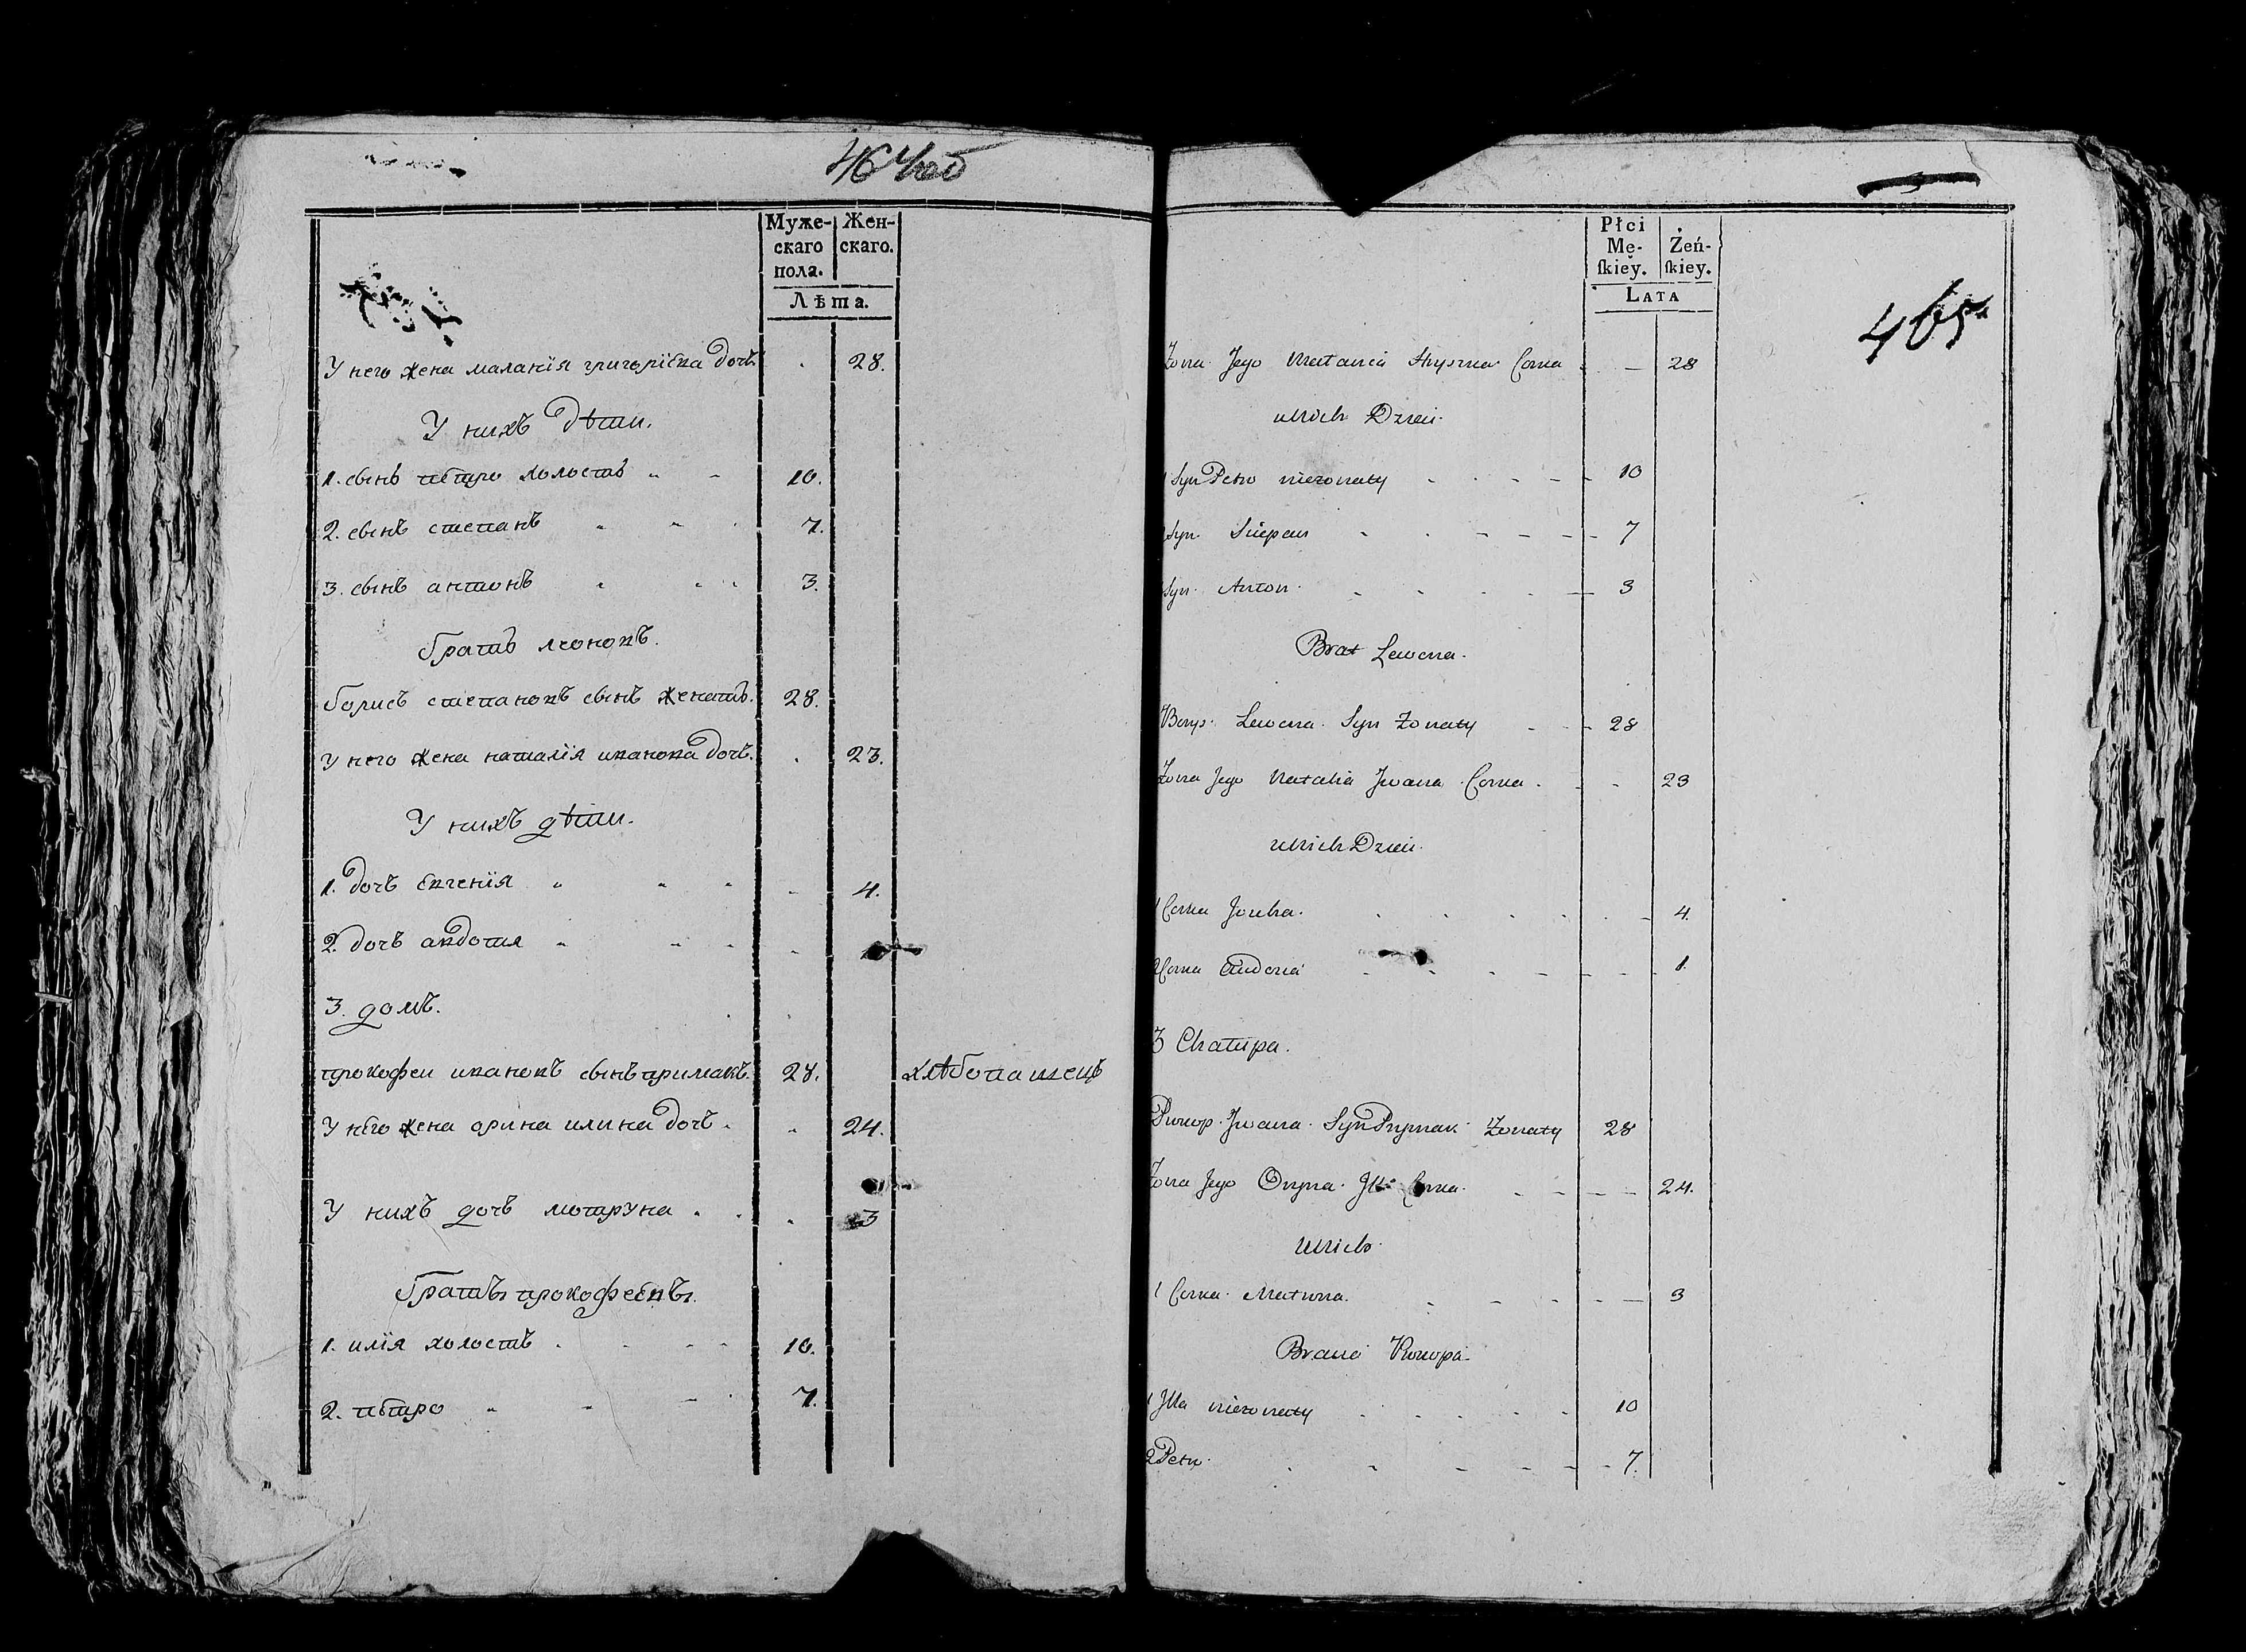 464 об
Муже-
скаго
пола.
Жен-
скаго.
Лѣта.
У него жена маланія григоріева дочъ. 28.
У нихъ дѣти.
1. сынъ петро холостъ 10.
2. сынъ степанъ 7.
3. сынъ антонъ 3.
братъ леоновъ.
борисъ степановъ сынъ женатъ. 28.
у него жена наталія иванова дочъ. 23.
У нихъ дѣти.
1. дочъ евгенія 4.
2. дочъ авдотія
3. домъ.
прокофеи ивановъ сынъ примакъ. 28. хлѣбопашецъ
У него жена орина илина дочъ. 24.
У нихъ дочъ мотруна 3
братъы прокофеевы.
1. илія холостъ 10.
2. петро 7.
465
Płci
Mę-
ſkiey.
Żeń-
ſkiey.
LATA
Zona Jego Małania Corka 28
Unich Dzieci
1 Syn Petro niezonaty 10
Syn Stepan 7
Syn Anton 3
Brat Lewona
Borys Lewona Syn Zonaty 28
Zona Jego Natalia Jwana Corka 23
Unich Dzieci
1 Corka Jouha 4.
2 Corka Audocia 1.
3 Chałupa.
Prokop Jwana Syn Prymak Zonaty 28
Zona Jego Oryna Corka 24.
Unich
1 Corka Matrona 3
Bracia Prokopa
1 Jlla niezonaty 10
2 Petro 7.